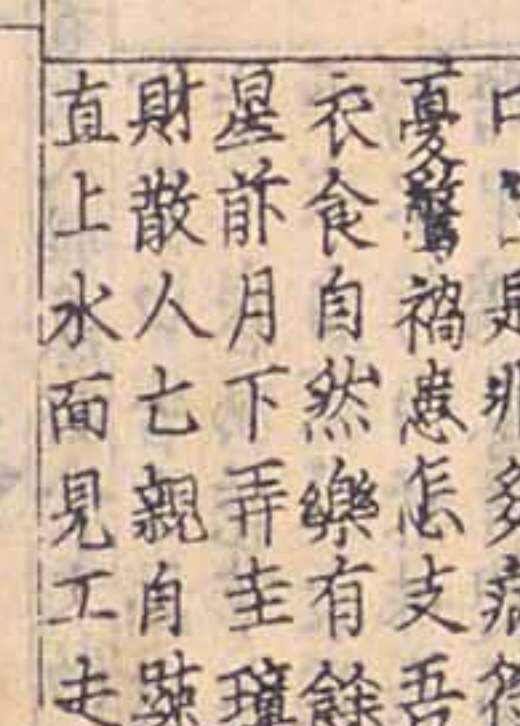 口上是非多病
憂驚禍患怎支吾
衣食自然樂有餘
星前月下弄圭璋
財散人亡親自疎
直上水面見工走